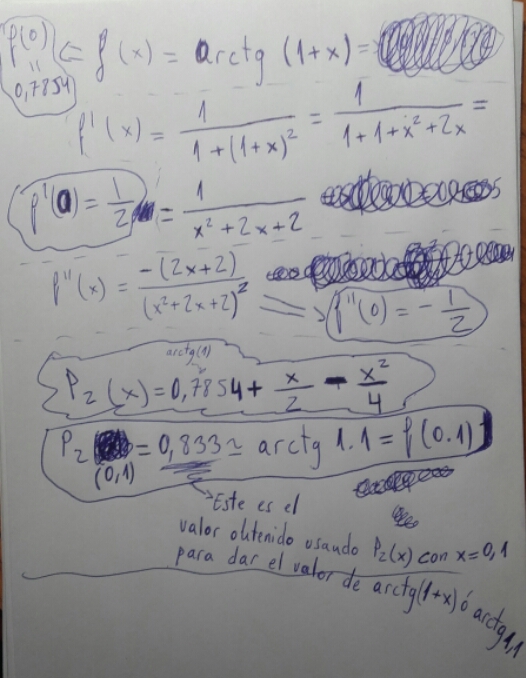 f(0) ⇐ f(x) = arctg (1+x) =
=
0,7854
f'(x) = 1/(1+(1+x)²) = 1/(1+1+x²+2x) =
f'(0) = 1/2 = 1/(x²+2x+2)
f''(x) = -(2x+2)/(x²+2x+2)² => f''(0) = - 1/2
arctg(1)
P₂(x) = 0,7854 + x/2 - x²/4
P₂ (0,1) = 0,833 ≃ arctg 1.1 = f(0.1)
Este es el
valor obtenido usando P₂(x) con x=0,1
para dar el valor de arctg(1+x) ó arctg 1,1